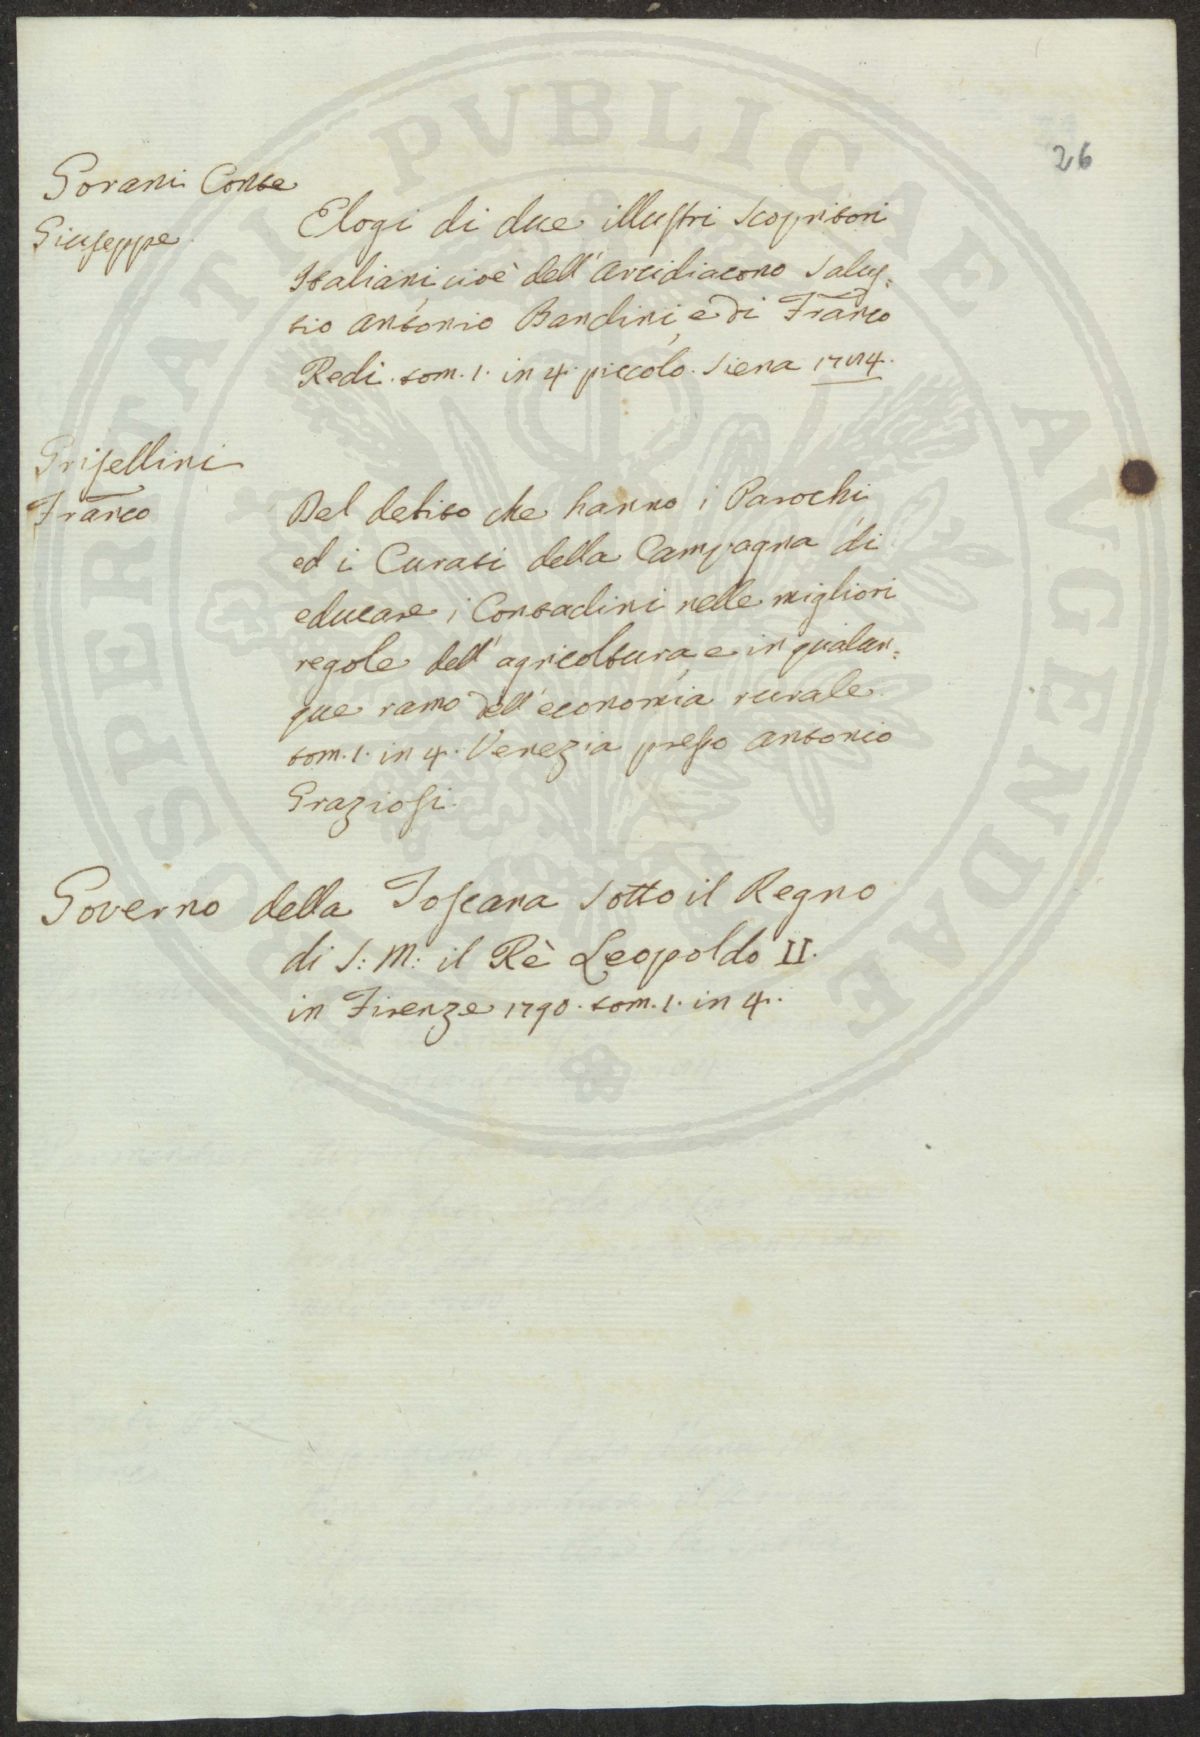 26
Gorani Conte
Giuseppe
Elogi di due illustri Scopritori
Italiani, cioè dell' Arcidiacono Salus=
tio Antonio Bandini, e di Franco
Redi. tom. 1. in 4. piccolo. Siena
Grisellini
Franco
Del debito che hanno i Parochi
ed i Curati della Campagna di
educare i Contadini nelle migliori
regole dell' agricoltura, e in qualun=
que ramo dell' economia rurale
tom. 1. in 4. Venezia presso Antonio
Graziosi.
Governo della Toscana Sotto il Regno
di S: M: il Rè Leopoldo II.
in Firenze 1790. tom. 1. in 4.
PROSPERITATI PVBLICAE AVGENDAE